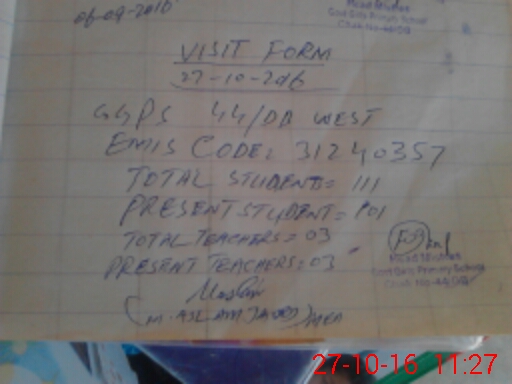 06-09-2016
Head Mistress
Govt Girls Primary School
Chak No 44/DB
VISIT FORM
27-10-2016
GGPS 44/DB WEST
EMIS CODE: 31240357
TOTAL STUDENTS= 111
PRESENT STUDENT= 101
TOTAL TEACHERS= 03
PRESENT TEACHERS: 03
Head Mistress
Govt Girls Primary School
Chak No 44/DB
(M. ASLAM JAVED) MEA
27-10-16 11:27